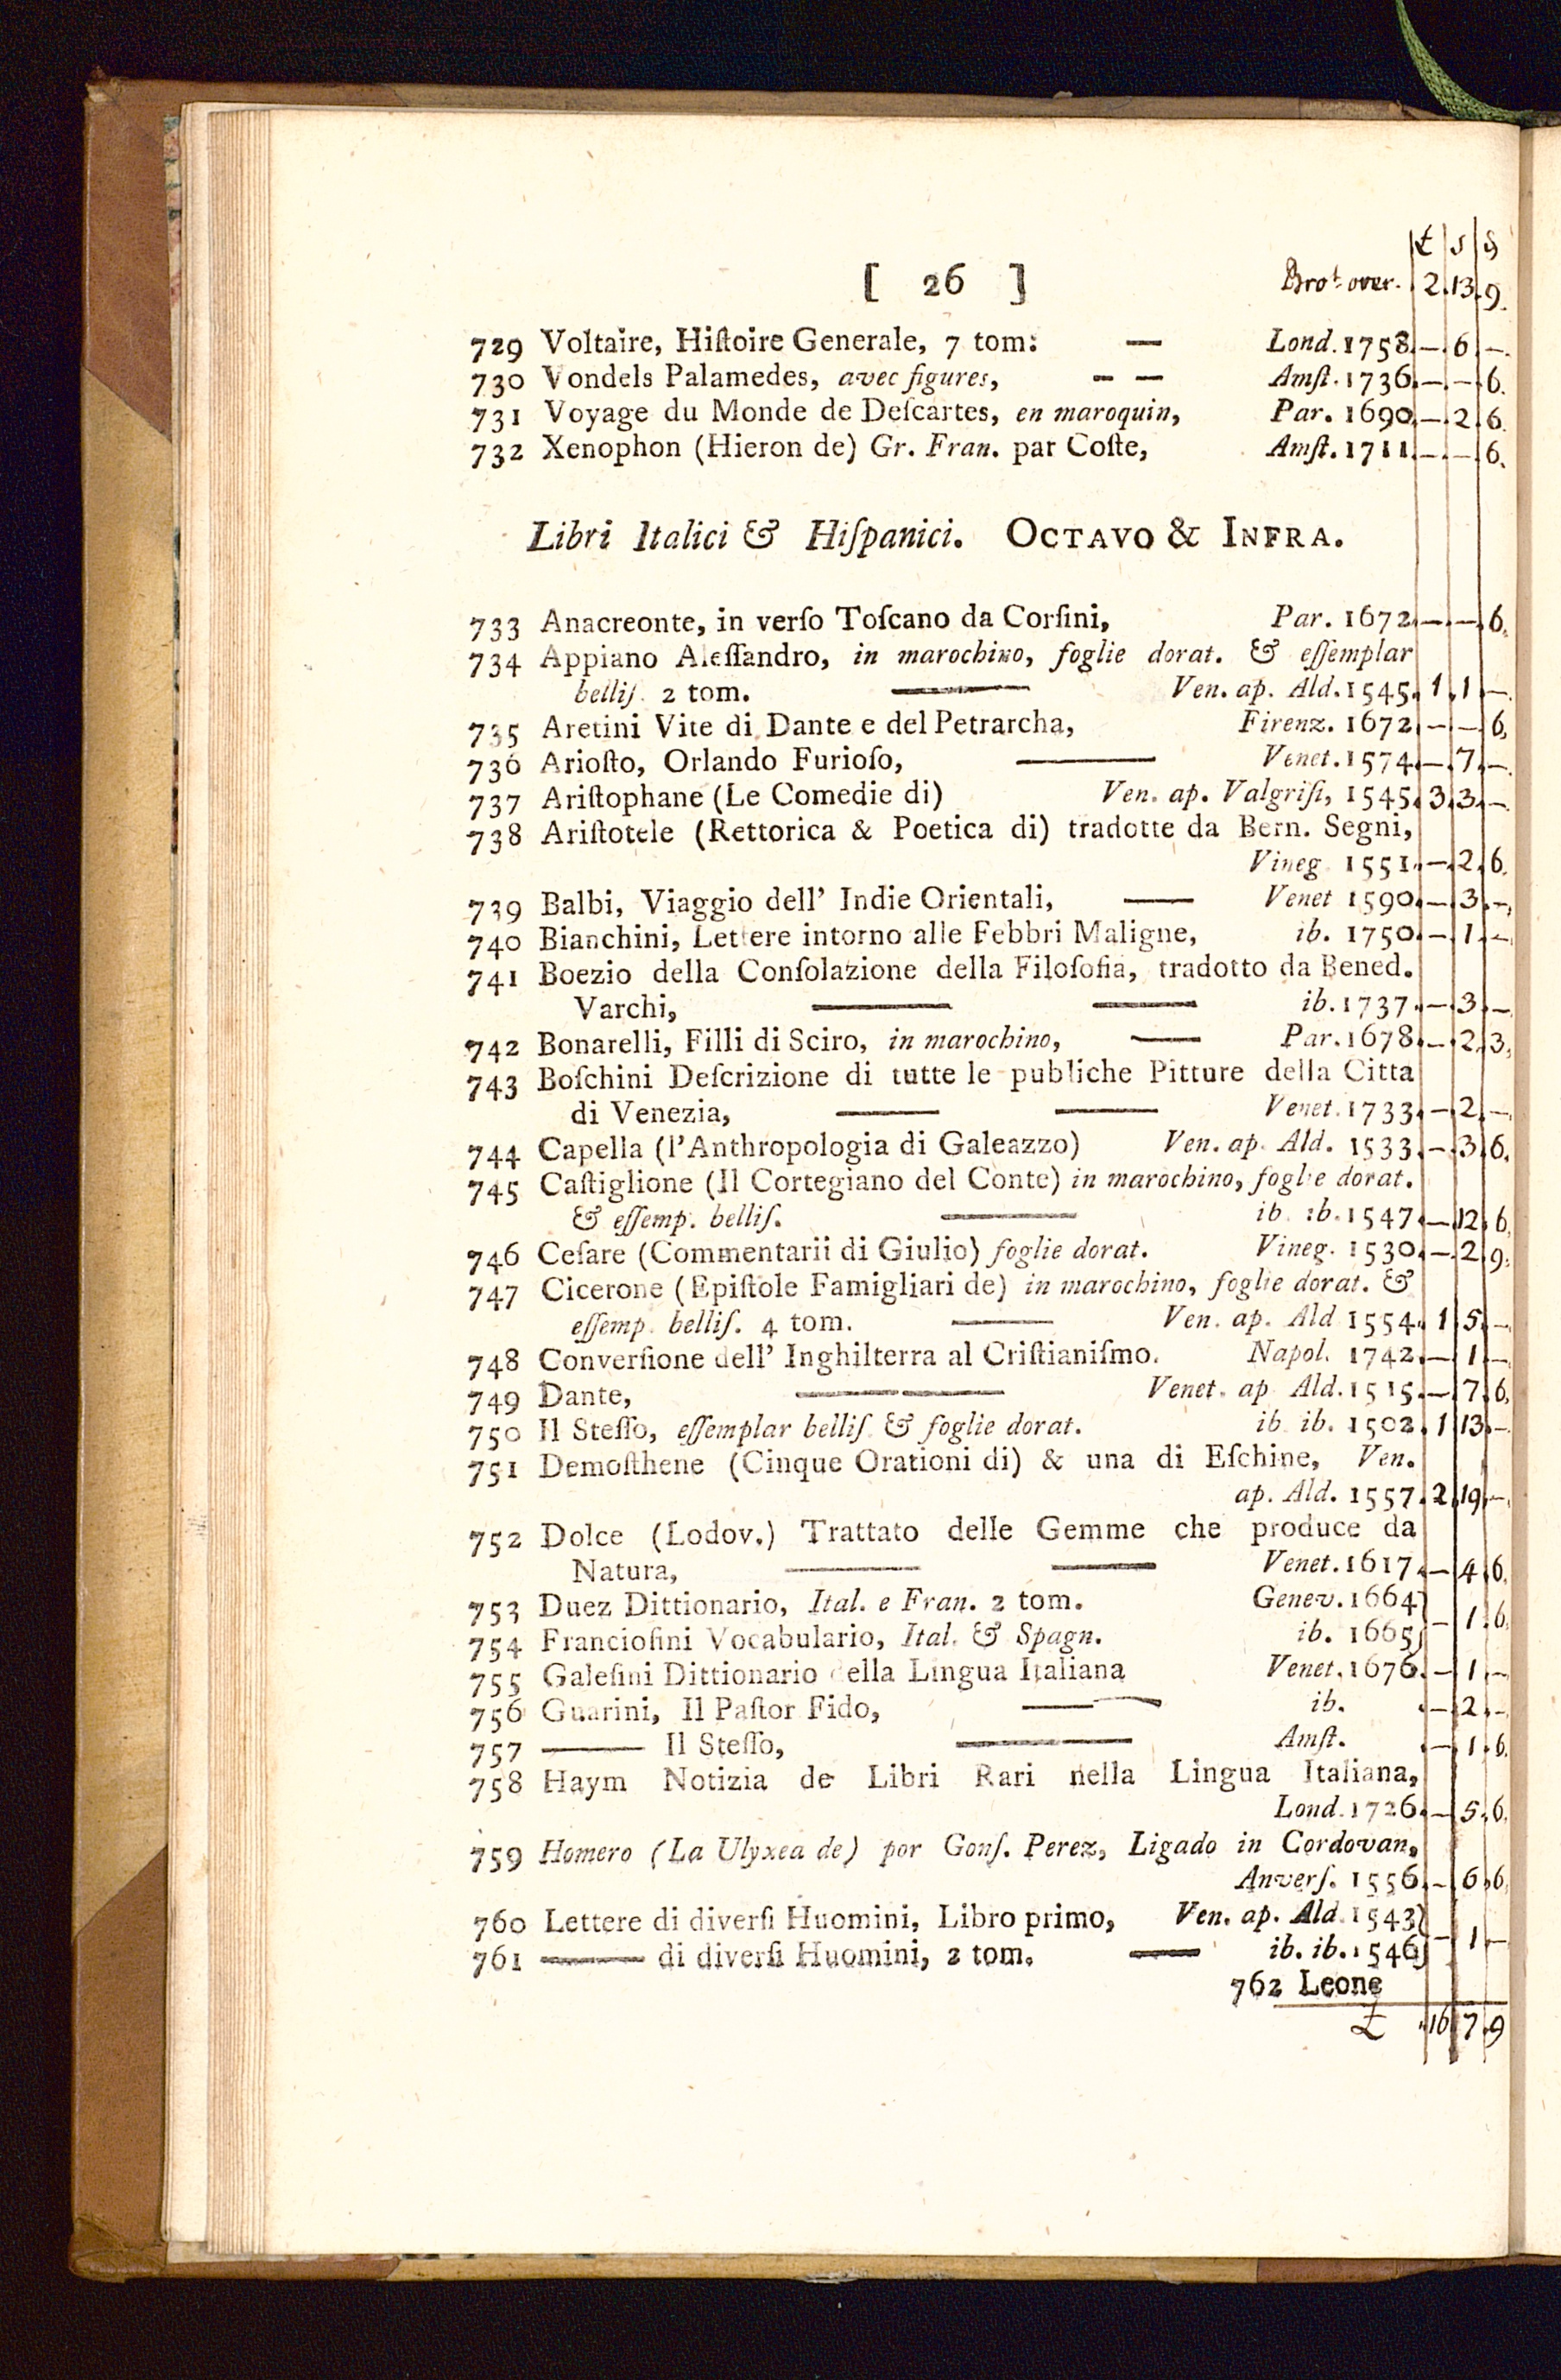 £ s d
[ 26 ] Brot. over. 2.13.9.
729 Voltaire, Hiſtoire Generale, 7 tom: — Lond. 1758. — 6 —.
730 Vondels Palamedes, avec figures, - — Amſt. 1736. — — 6.
731 Voyage du Monde de Deſcartes, en maroquin, Par. 1690. — 2 6.
732 Xenophon (Hieron de) Gr. Fran. par Coſte, Amſt. 1711. — — 6.
Libri Italici & Hiſpanici. OCTAVO & INFRA.
733 Anacreonte, in verſo Toſcano da Corſini, Par. 1672. — — 6.
734 Appiano Aleſſandro, in marochino, foglie dorat. & eſſemplar
belliſ. 2 tom. — Ven. ap. Ald. 1545. 1 1 —.
735 Aretini Vite di Dante e del Petrarcha, Firenz. 1672. — — 6.
736 Arioſto, Orlando Furioſo, — Venet. 1574. — 7 —.
737 Ariſtophane (Le Comedie di) Ven. ap. Valgriſi, 1545. 3 3 —.
738 Ariſtotele (Rettorica & Poetica di) tradotte da Bern. Segni,
Vineg. 1551. — 2 6.
739 Balbi, Viaggio dell' Indie Orientali, — Venet 1590. — 3 —.
740 Bianchini, Lettere intorno alle Febbri Maligne, ib. 1750. — 1 —.
741 Boezio della Conſolazione della Filoſofia, tradotto da Bened.
Varchi, — — ib. 1737. — 3 —.
742 Bonarelli, Filli di Sciro, in marochino, — Par. 1678. — 2 3.
743 Boſchini Deſcrizione di tutte le publiche Pitture della Citta
di Venezia, — — Venet. 1733. — 2 —.
744 Capella (l'Anthropologia di Galeazzo) Ven. ap. Ald. 1533. — 3 6.
745 Caſtiglione (Il Cortegiano del Conte) in marochino, foglie dorat.
& eſſemp. belliſ. — ib. ib. 1547. — 12 6.
746 Ceſare (Commentarii di Giulio) foglie dorat. Vineg. 1530. — 2 9.
747 Cicerone (Epiſtole Famigliari de) in marochino, foglie dorat. &
eſſemp. belliſ. 4 tom. — Ven. ap. Ald 1554. 1 5 —.
748 Converſione dell' Inghilterra al Criſtianiſmo. Napol. 1742. — 1 —.
749 Dante, — Venet. ap Ald. 1515. — 7 6.
750 Il Steſſo, eſſemplar belliſ. & foglie dorat. ib. ib. 1502. 1 13 —.
751 Demoſthene (Cinque Orationi di) & una di Eſchine, Ven.
ap. Ald. 1557. 2 19 —.
752 Dolce (Lodov.) Trattato delle Gemme che produce da
Natura, — — Venet. 1617. — 4 6.
753 Duez Dittionario, Ital. e Fran. 2 tom. Genev. 1664 }
754 Francioſini Vocabulario, Ital. & Spagn. ib. 1665 } — 1 6.
755 Galeſini Dittionario della Lingua Italiana Venet. 1676. — 1 —
756 Guarini, Il Paſtor Fido, — ib. — 2 —
757 — Il Steſſo, — Amſt. — 1 6.
758 Haym Notizia de Libri Rari nella Lingua Italiana,
Lond. 1726. — 5 6.
759 Homero (La Ulyxea de) por Gonſ. Perez, Ligado in Cordovan,
Anverſ. 1556. — 6 6.
760 Lettere di diverſi Huomini, Libro primo, Ven. ap. Ald. 1543 }
761 — di diverſi Huomini, 2 tom. — ib. ib. 1546 } — 1 —
762 Leone
£ 16 7 9